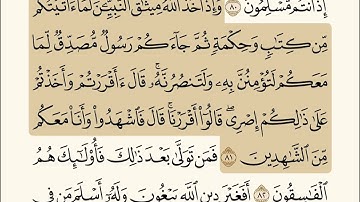 إِذْ أَنتُم مُّسْلِمُونَ ٨٠ وَإِذْ أَخَذَ ٱللَّهُ مِيثَٰقَ ٱلنَّبِيِّـۧنَ لَمَآ ءَاتَيْتُكُم
مِّن كِتَٰبٍ وَحِكْمَةٍ ثُمَّ جَآءَكُمْ رَسُولٌ مُّصَدِّقٌ لِّمَا
مَعَكُمْ لَتُؤْمِنُنَّ بِهِۦ وَلَتَنصُرُنَّهُۥۚ قَالَ ءَأَقْرَرْتُمْ وَأَخَذْتُمْ
عَلَىٰ ذَٰلِكُمْ إِصْرِىۖ قَالُوٓا۟ أَقْرَرْنَاۚ قَالَ فَٱشْهَدُوا۟ وَأَنَا۠ مَعَكُم
مِّنَ ٱلشَّٰهِدِينَ ٨١ فَمَن تَوَلَّىٰ بَعْدَ ذَٰلِكَ فَأُو۟لَٰٓئِكَ هُمُ
ٱلْفَٰسِقُونَ ٨٢ أَفَغَيْرَ دِينِ ٱللَّهِ يَبْغُونَ وَلَهُۥٓ أَسْلَمَ مَن فِى